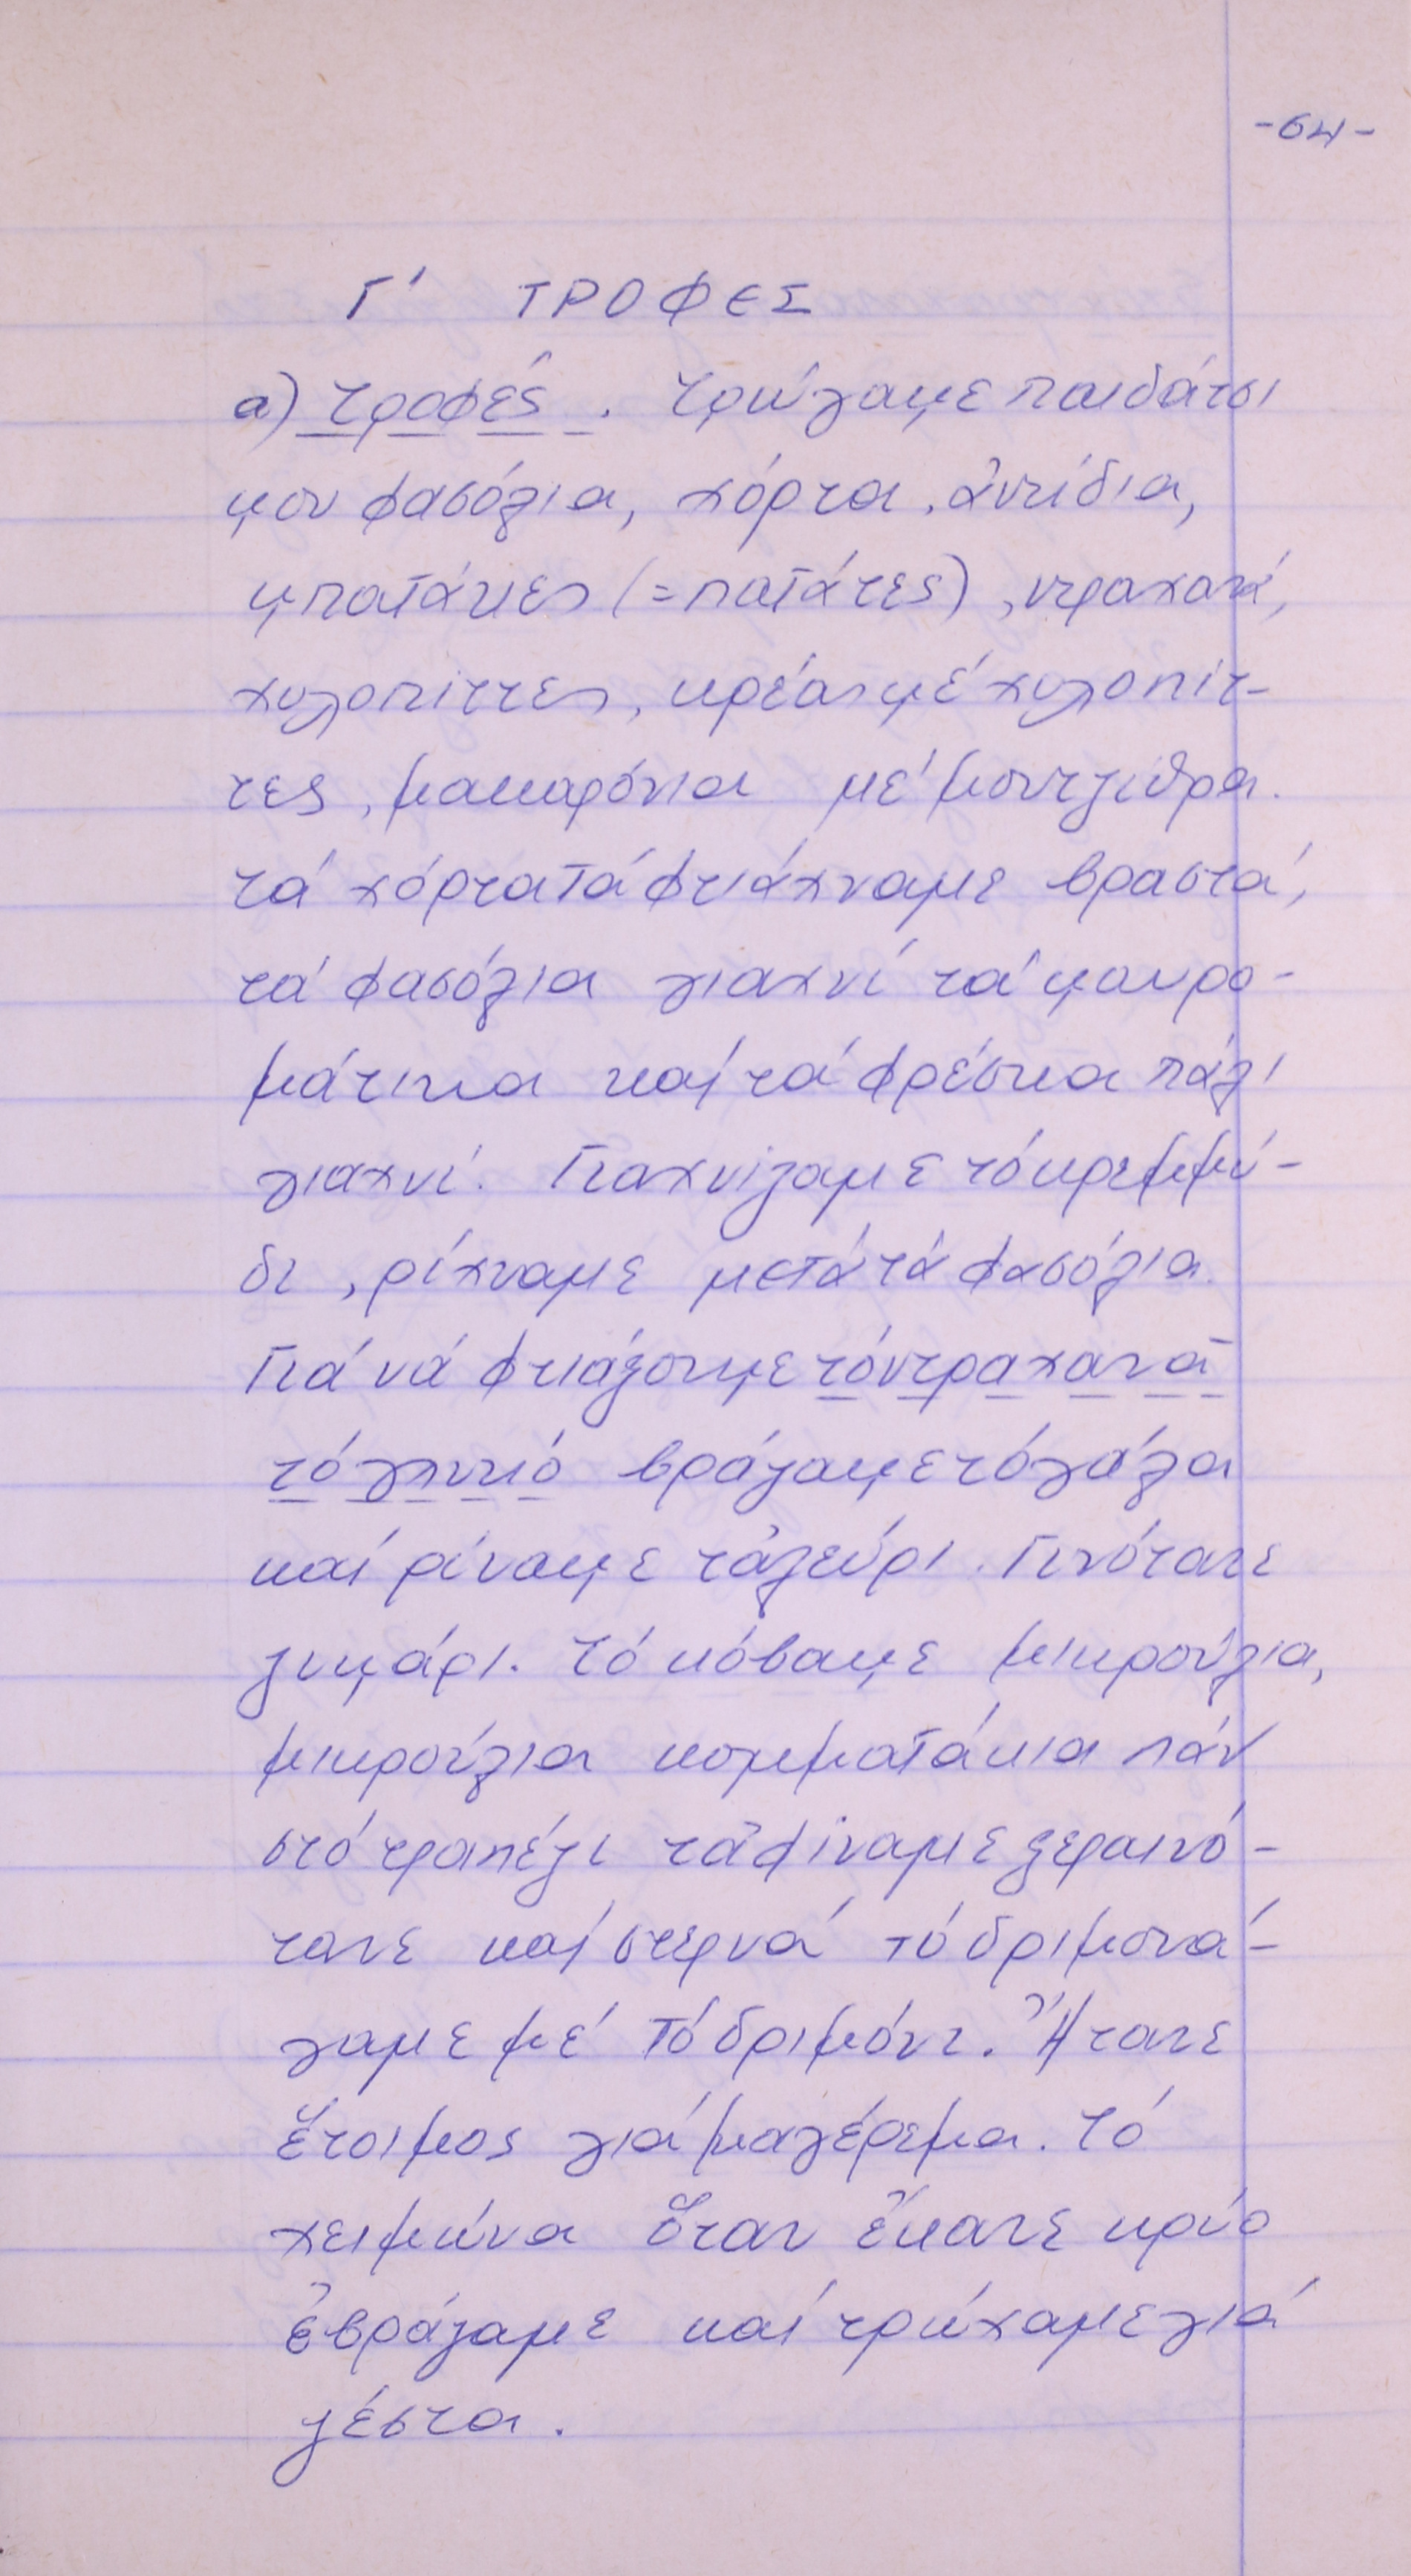 -64-
Γ' ΤΡΟΦΕΣ
α) Τροφές. Τρώγαμε παιδάτσι
μου φασόλια, χόρτα, ἀντίδια,
μπατάκες (=πατάτες), ντραχανά,
χυλοπίττες, κρέας μέ χυλοπίτ-
τες, μακαρόνια μέ μουντζίθρα.
τά χόρτα τά φτιάχναμε βραστά,
τά φασόλια γιαχνί τά μαυρο-
μάτικα καί τά φρέσκα πάλι
γιαχνί. Γιαχνίζαμε τό κρεμμύ-
δι, ρίχναμε μετά τά φασόλια.
Γιά νά φτιάξουμε τόν τραχανᾶ
τό γλυκό βράζαμε τό γάλα
καί ρίναμε τἀλεύρι. Γινότανε
ζυμάρι. Τό κόβαμε μικρούλια,
μικρούλια κομματάκια πάν
στό τραπέζι τἀφίναμε ξεραινό-
τανε καί στερνά τό δριμονά-
γαμε μέ τό δριμόνι. Ἤτανε
ἕτοιμος γιά μαγέρεμα. Τό
χειμώνα ὅταν ἔκανε κρύο
ἐβράζαμε καί τρώχαμε γιά
ζέστα.